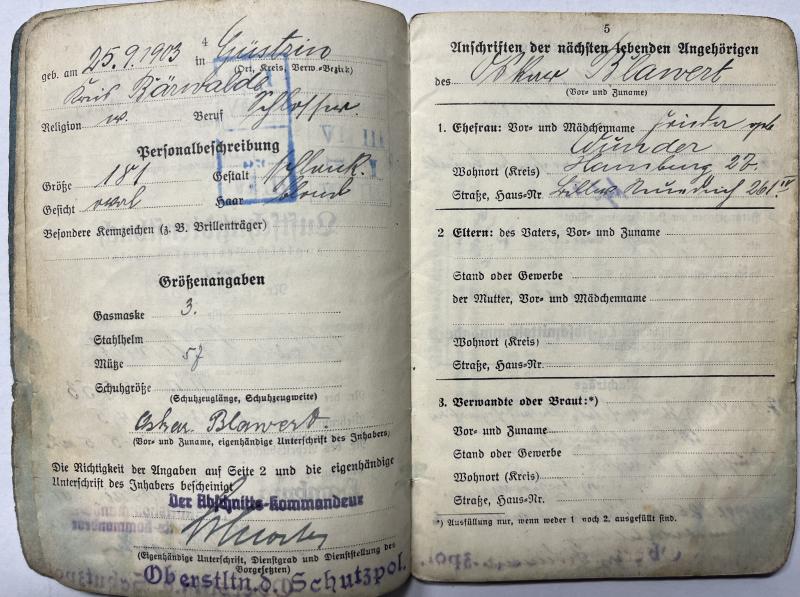 4
geb. am 25.9.1903 in Güstzin
(Ort, Kreis, Verw.-Bezirk)
Kreis Bärwalde
Religion Beruf Schlosser.
Personalbeschreibung
Größe 181 Gestalt schlank.
Gesicht oval Haar blond
Besondere Kennzeichen (z. B. Brillenträger)
Größenangaben
Gasmaske 3.
Stahlhelm
Mütze 57
Schuhgröße
(Schuhzeuglänge, Schuhzeugweite)
Oskar Blawert.
(Vor- und Zuname, eigenhändige Unterschrift des Inhabers)
Die Richtigkeit der Angaben auf Seite 2 und die eigenhändige
Unterschrift des Inhabers bescheinigt
Der Abschnitts-Kommandeur
(Eigenhändige Unterschrift, Dienstgrad und Dienststellung des
Vorgesetzten)
Oberstltn.d. Schutzpol.
5
Anschriften der nächsten lebenden Angehörigen
des Oskar Blawert
(Vor- und Zuname)
1. Ehefrau: Vor- und Mädchenname Frieda geb
Wunder
Wohnort (Kreis) Hamburg 27
Straße, Haus-Nr. 261 IV
2 Eltern: des Vaters, Vor- und Zuname
Stand oder Gewerbe
der Mutter, Vor- und Mädchenname
Wohnort (Kreis)
Straße, Haus-Nr.
3. Verwandte oder Braut:*)
Vor- und Zuname
Stand oder Gewerbe
Wohnort (Kreis)
Straße, Haus-Nr.
*) Ausfüllung nur, wenn weder 1 noch 2. ausgefüllt sind.